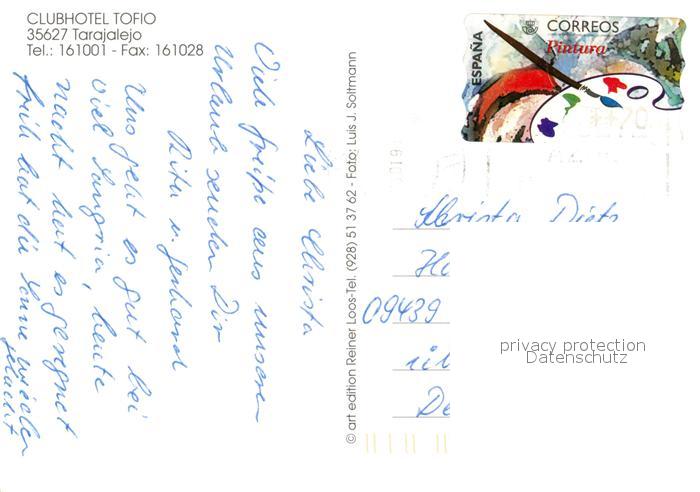 CLUBHOTEL TOFIO
35627 Tarajalejo
Tel.: 161001 - Fax: 161028
Liebe Christa
Viele Grüße aus unseren
Urlaub senden Dir
Rita u. Gerhard
Uns geht es gut bei
viel Sangria, heute
Nacht hat es geregnet
früh hat die Sonne wieder
gelacht
© art edition Reiner Loos-Tel. (928) 51 37 62 - Foto: Luis J. Soltmann
ESPAÑA
CORREOS
Pintura
Christa
09439
privacy protection
Datenschutz